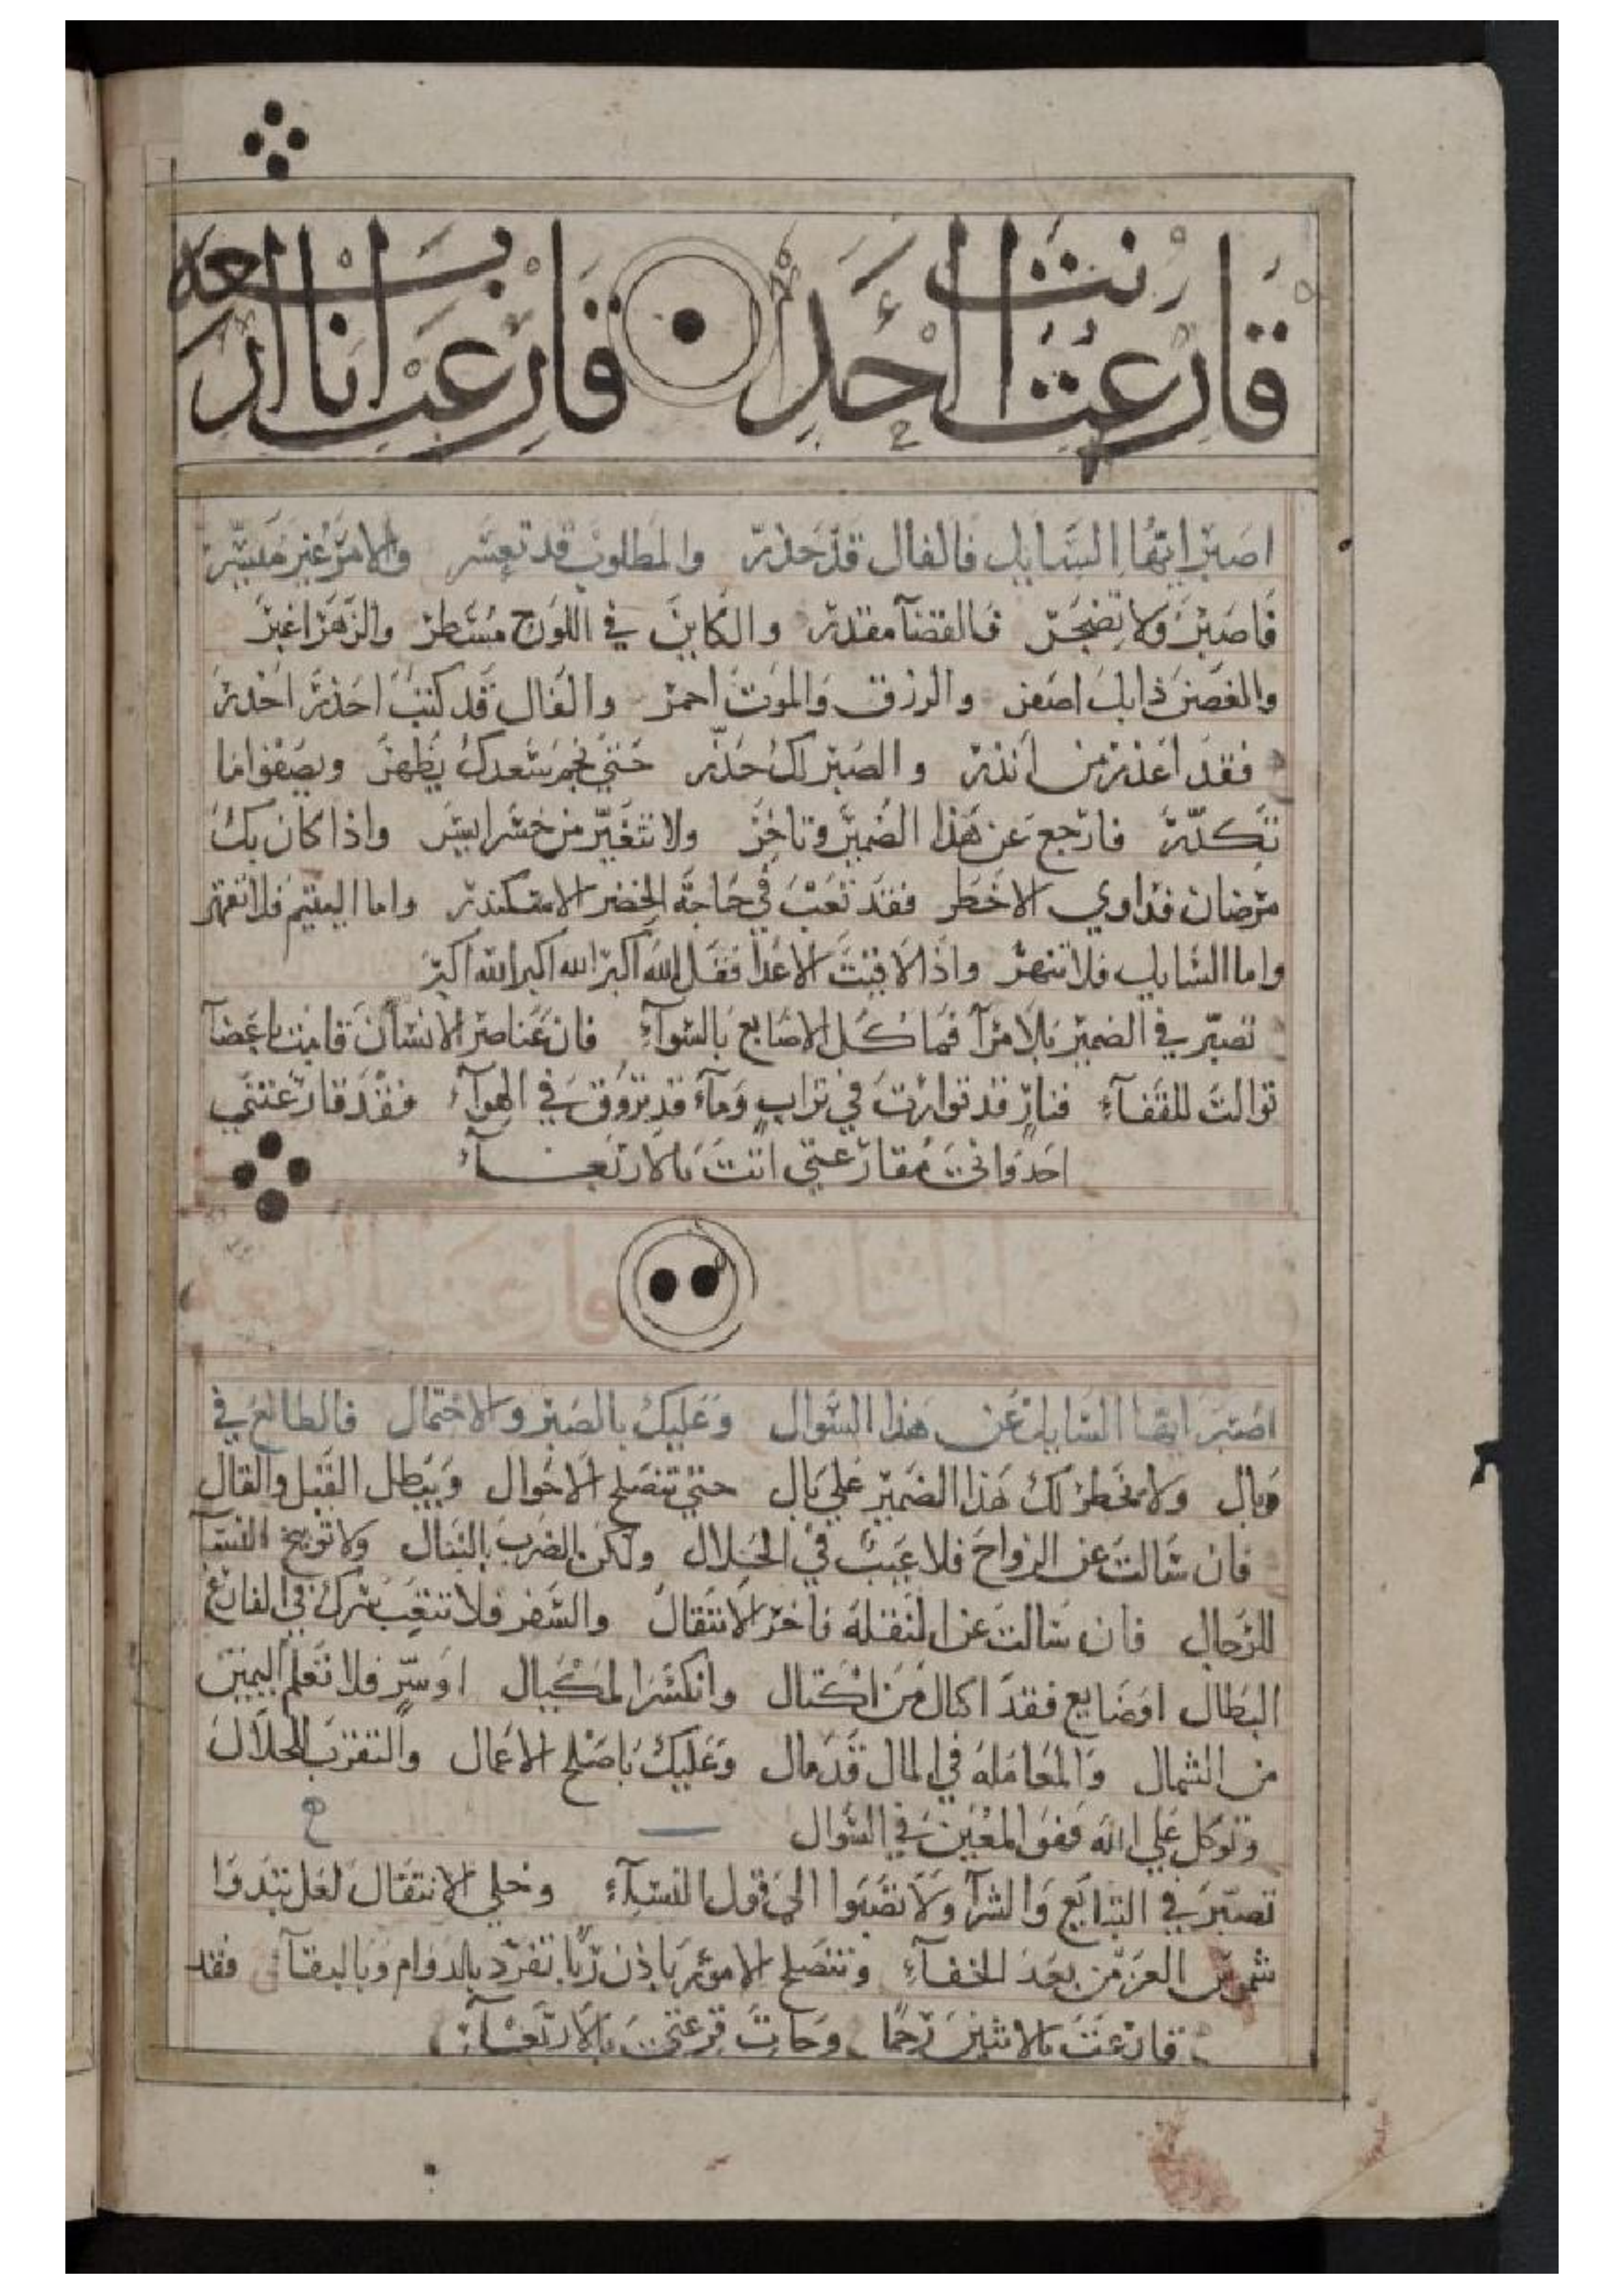 قارعت انت احد قارعت انا اربعه
اصبر ايها السايل فالفال قد حذر والمطلوب قد تعسر والامر غير ميسر
فاصبر ولا تضجر فالقضآ مقدر والكاين في اللوح مسطر والزهر اغبر
والغصن ذابل اصفر والرزق والموت احمر والفال قد كنت احذر احذر
فقد اعذر من انذر والصبر لك حذر حتي نجم سعدك يظهر ويصفوا ما
تكدر فارجع عن هذا الضمير وتاخر ولا تتغير من خسر اليسر واذا كان بك
مرضان فداوي الاخطر فقد تعب في حاجة الخضر الاسكندر واما اليتيم فلا تقهر
واما السايل فلا تنهر واذا لاقيت الاعدا فقل الله اكبر الله اكبر الله اكبر
تصبر في الضمير بلا مرآ فما كل الاصابع بالسوآء فان عناصر الانسان قامت باعضآ
توالت للقفآء فنار قد توارت في تراب ومآء قد تروق في الهوآء فقد قارعتني
احد واني مقارعتي اتت بالاربعــآء
اصبر ايها السايل عن هذا السوال وعليك بالصبر والاحتمال فالطالع في
وبال ولا يخطر لك هذا الضمير علي بال حتي تنصلح الاحوال ويبطل القيل والقال
فان سالت عن الزواج فلا عيب في الحلال ولكن الضرب بالنبال ولا توبيخ النسآ
للرجال فان سالت عن النقله فاخر الانتقال والسفر فلا تتعب سرك في الفارغ
البطال او ضايع فقد اكال من اكتال وانكسر المكيال او سر فلا تعلم اليمين
من الشمال والمعامله في المال قد مال وعليك باصلح الاعمال والتقرب بالحلال
وتوكل علي الله فهو المعين في السوال
تصبر في التبايع والشرآ ولا تصبوا الي قول النسآء وخلي الانتقال لعل تبدوا
شموس العز من بعد الخفآء وتنصلح الامور باذن ربا تفرد بالدوام وبالبقآء فقد
قارعت بالاثنين رحما وجات قرعتي بالاربعــآء